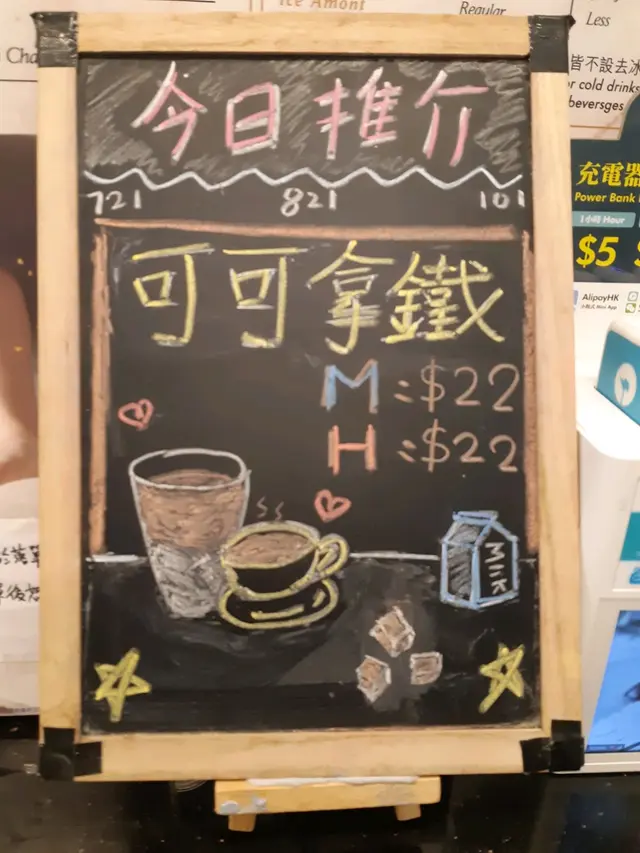 Ice Amont
Regular
Less
皆不設去冰
cold drinks
beversges
今日推介
721 821 101
充電器
Power Bank
1小時 Hour
$5
AlipayHK
可可拿鐵
M:$22
H:$22
Milk